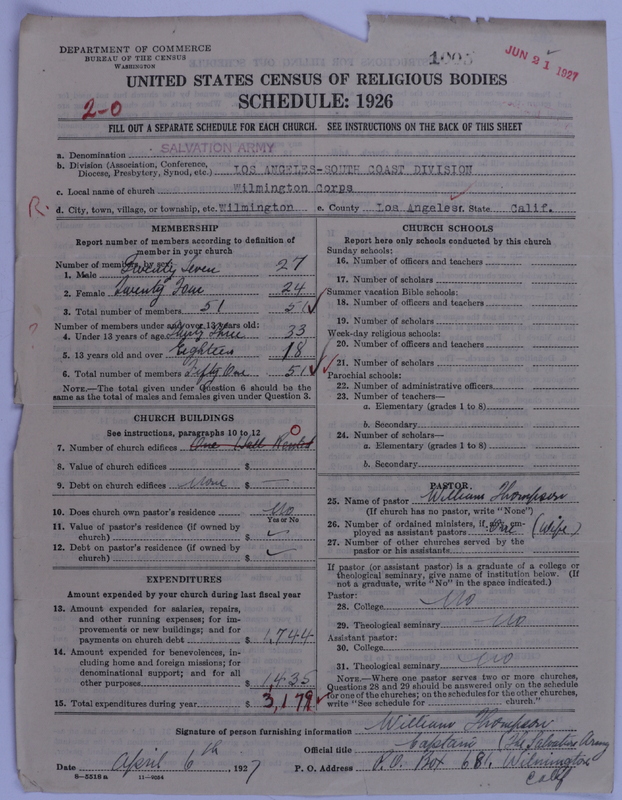 DEPARTMENT OF COMMERCE
BUREAU OF THE CENSUS
WASHINGTON
1005
JUN 21 1927
UNITED STATES CENSUS OF RELIGIOUS BODIES
SCHEDULE: 1926
2-0
FILL OUT A SEPARATE SCHEDULE FOR EACH CHURCH. SEE INSTRUCTIONS ON THE BACK OF THIS SHEET
a. Denomination SALVATION ARMY
b. Division (Association, Conference, Diocese, Presbytery, Synod, etc.) LOS ANGELES-SOUTH COAST DIVISION
c. Local name of church Wilmington Corps
R. d. City, town, village, or township, etc. Wilmington e. County Los Angeles f. State Calif.
MEMBERSHIP
Report number of members according to definition of member in your church
Number of members, by sex:
1. Male Twenty Seven 27
2. Female Twenty Four 24
3. Total number of members 51 51
Number of members under and over 13 years old:
4. Under 13 years of age Thirty Three 33
5. 13 years old and over Eighteen 18
6. Total number of members Fifty One 51
NOTE.—The total given under Question 6 should be the same as the total of males and females given under Question 3.
CHURCH BUILDINGS
See instructions, paragraphs 10 to 12
7. Number of church edifices One Hall Rented 0
8. Value of church edifices $
9. Debt on church edifices None $ —
10. Does church own pastor's residence No
Yes or No
11. Value of pastor's residence (if owned by church) $
12. Debt on pastor's residence (if owned by church) $
EXPENDITURES
Amount expended by your church during last fiscal year
13. Amount expended for salaries, repairs, and other running expenses; for improvements or new buildings; and for payments on church debt $ 1,744
14. Amount expended for benevolences, including home and foreign missions; for denominational support; and for all other purposes $ 1,435
15. Total expenditures during year $ 3,179
CHURCH SCHOOLS
Report here only schools conducted by this church
Sunday schools:
16. Number of officers and teachers
17. Number of scholars
Summer vacation Bible schools:
18. Number of officers and teachers
19. Number of scholars
Week-day religious schools:
20. Number of officers and teachers
21. Number of scholars
Parochial schools:
22. Number of administrative officers
23. Number of teachers—
a. Elementary (grades 1 to 8)
b. Secondary
24. Number of scholars—
a. Elementary (grades 1 to 8)
b. Secondary
PASTOR
25. Name of pastor William Thompson
(If church has no pastor, write "None")
26. Number of ordained ministers, if any, employed as assistant pastors One (Wife)
27. Number of other churches served by the pastor or his assistants
If pastor (or assistant pastor) is a graduate of a college or theological seminary, give name of institution below. (If not a graduate, write "No" in the space indicated.)
Pastor:
28. College No
29. Theological seminary No
Assistant pastor:
30. College No
31. Theological seminary No
NOTE.—Where one pastor serves two or more churches, Questions 28 and 29 should be answered only on the schedule for one of the churches; on the schedules for the other churches, write "See schedule for church."
Signature of person furnishing information William Thompson
Official title Captain (The Salvation Army
Date April 6th, 1927 P. O. Address P.O. Box 681, Wilmington
Calif
8-5518 a 11-9054